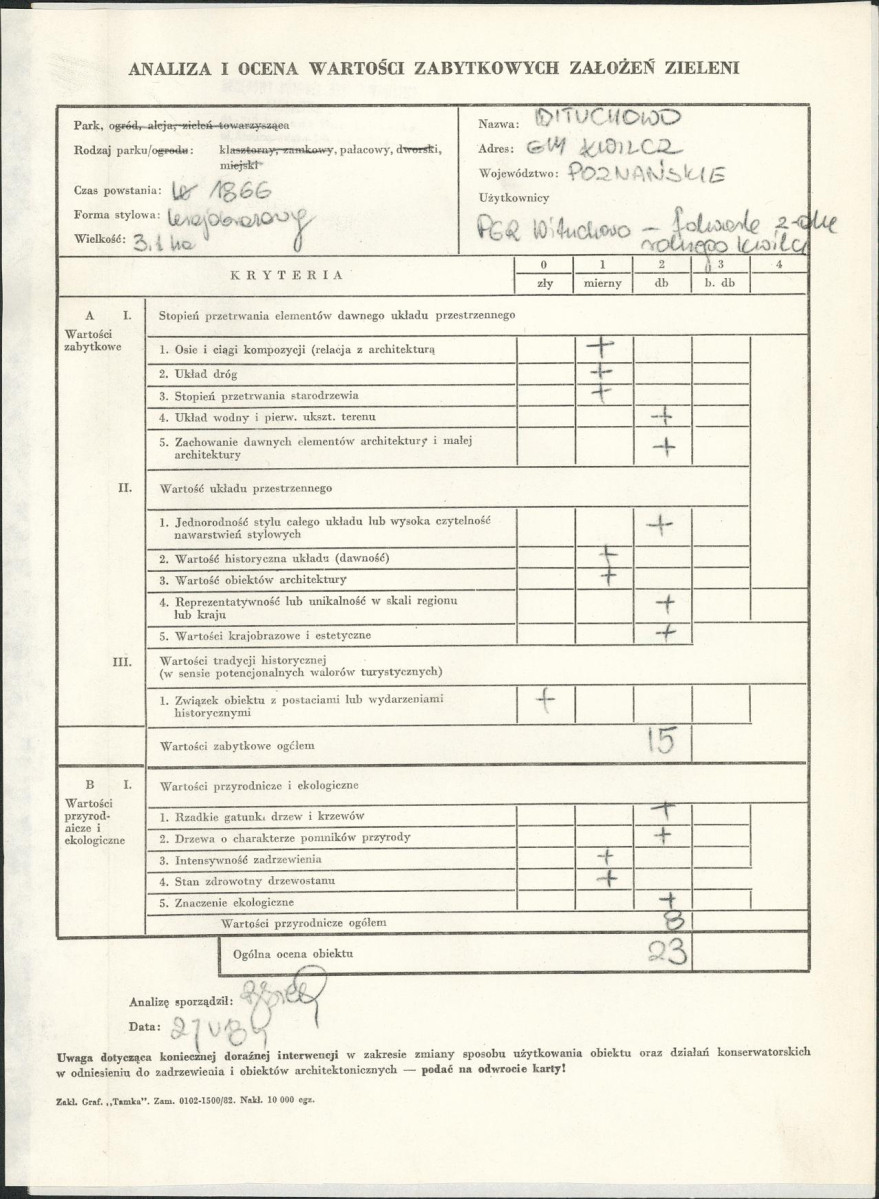 ANALIZA I OCENA WARTOŚCI ZABYTKOWYCH ZAŁOŻEŃ ZIELENI
Park, ogród, aleja, zieleń towarzysząca
Rodzaj parku/ogrodu: klasztorny, zamkowy, pałacowy, dworski,
miejski
Czas powstania: 1866
Forma stylowa: krajobrazowy
Wielkość: 3.1 ha
Nazwa: WITUCHOWO
Adres: GM KWILCZ
Województwo: POZNAŃSKIE
Użytkownicy
PGR Wituchowo – folwark
rolnego Kwilcz
KRYTERIA
0 1 2 3 4
zły mierny db b. db
A I. Stopień przetrwania elementów dawnego układu przestrzennego
Wartości
zabytkowe
1. Osie i ciągi kompozycji (relacja z architekturą +
2. Układ dróg +
3. Stopień przetrwania starodrzewia +
4. Układ wodny i pierw. ukszt. terenu +
5. Zachowanie dawnych elementów architektury i małej
architektury +
II. Wartość układu przestrzennego
1. Jednorodność stylu całego układu lub wysoka czytelność
nawarstwień stylowych +
2. Wartość historyczna układu (dawność) +
3. Wartość obiektów architektury +
4. Reprezentatywność lub unikalność w skali regionu
lub kraju +
5. Wartości krajobrazowe i estetyczne +
III. Wartości tradycji historycznej
(w sensie potencjonalnych walorów turystycznych)
1. Związek obiektu z postaciami lub wydarzeniami
historycznymi +
Wartości zabytkowe ogółem 15
B I. Wartości przyrodnicze i ekologiczne
Wartości
przyrod-
nicze i
ekologiczne
1. Rzadkie gatunki drzew i krzewów +
2. Drzewa o charakterze pomników przyrody +
3. Intensywność zadrzewienia +
4. Stan zdrowotny drzewostanu +
5. Znaczenie ekologiczne +
Wartości przyrodnicze ogółem 8
Ogólna ocena obiektu 23
Analizę sporządził:
Data:
Uwaga dotycząca koniecznej doraźnej interwencji w zakresie zmiany sposobu użytkowania obiektu oraz działań konserwatorskich
w odniesieniu do zadrzewienia i obiektów architektonicznych — podać na odwrocie karty!
Zakł. Graf. „Tamka”. Zam. 0102-1500/82. Nakł. 10 000 egz.